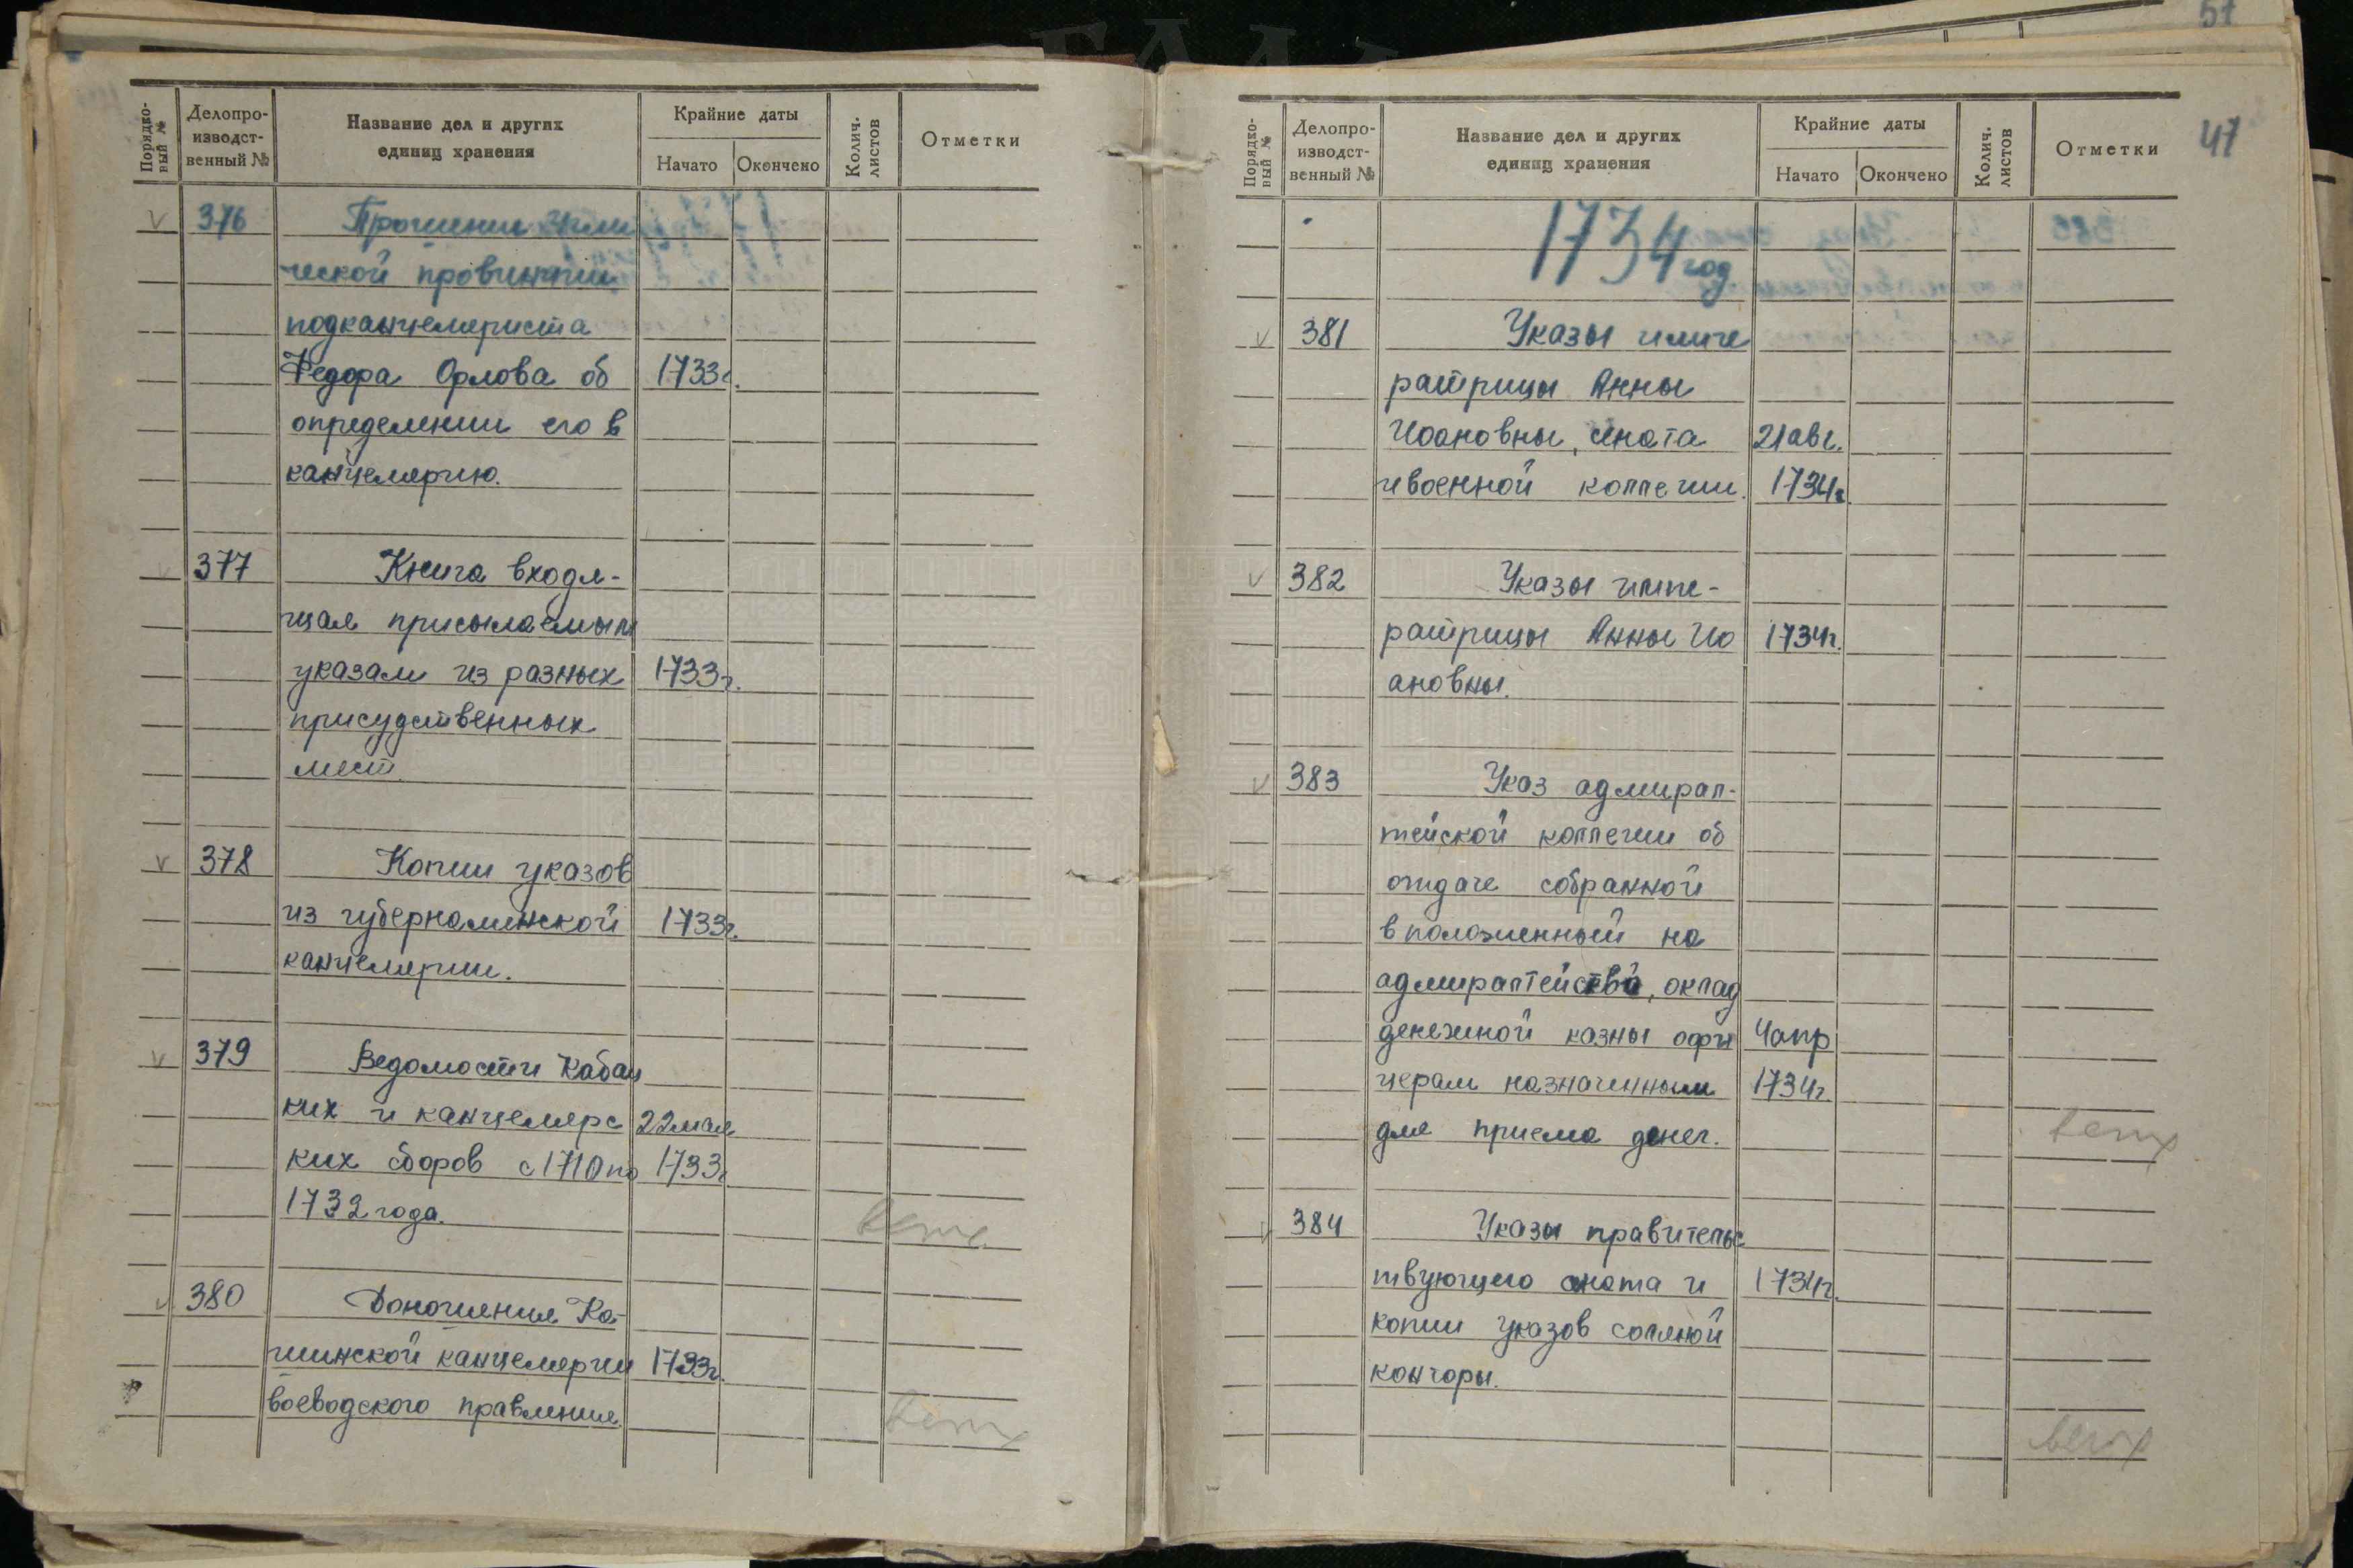 57
Порядко-
вый №
Делопро-
изводст-
венный №
Название дел и других
единиц хранения
Крайние даты
Начато
Окончено
Колич.
листов
Отметки
V 376 Прошении Угли
ческой провинции
подканцеляриста
Федора Орлова об 1733г.
определении его в
канцелярию.
V 377 Книга входя-
щая присылаемым
указам из разных 1733г.
присудственных
мест.
V 378 Копии указов
из губернаминской 1733г.
канцелярии.
V 379 Ведомости Кабац
ких и канцелярс 22 мая
ких сборов с 1710 по 1733г
1732 года.
ветх
V 380 Доношения Ка-
шинской канцелярии 1733г.
воеводского правления.
ветх
47
Порядко-
вый №
Делопро-
изводст-
венный №
Название дел и других
единиц хранения
Крайние даты
Начато
Окончено
Колич.
листов
Отметки
1734 год
V 381 Указы импе
ратрицы Анны
Иоановны, сената 21 авг.
и военной коллегии. 1734г
V 382 Указы импе-
ратрицы Анны Ио 1734г.
ановны.
V 383 Указ адмирал-
тейской коллегии об
отдаче собранной
в положенный на
адмиралтейство, оклад
денежной казны офи 4 апр
церам назначенным 1734г.
для приема денег.
ветх
V 384 Указы правительс
твующего сената и 1734г.
копии указов соляной
конторы.
ветх